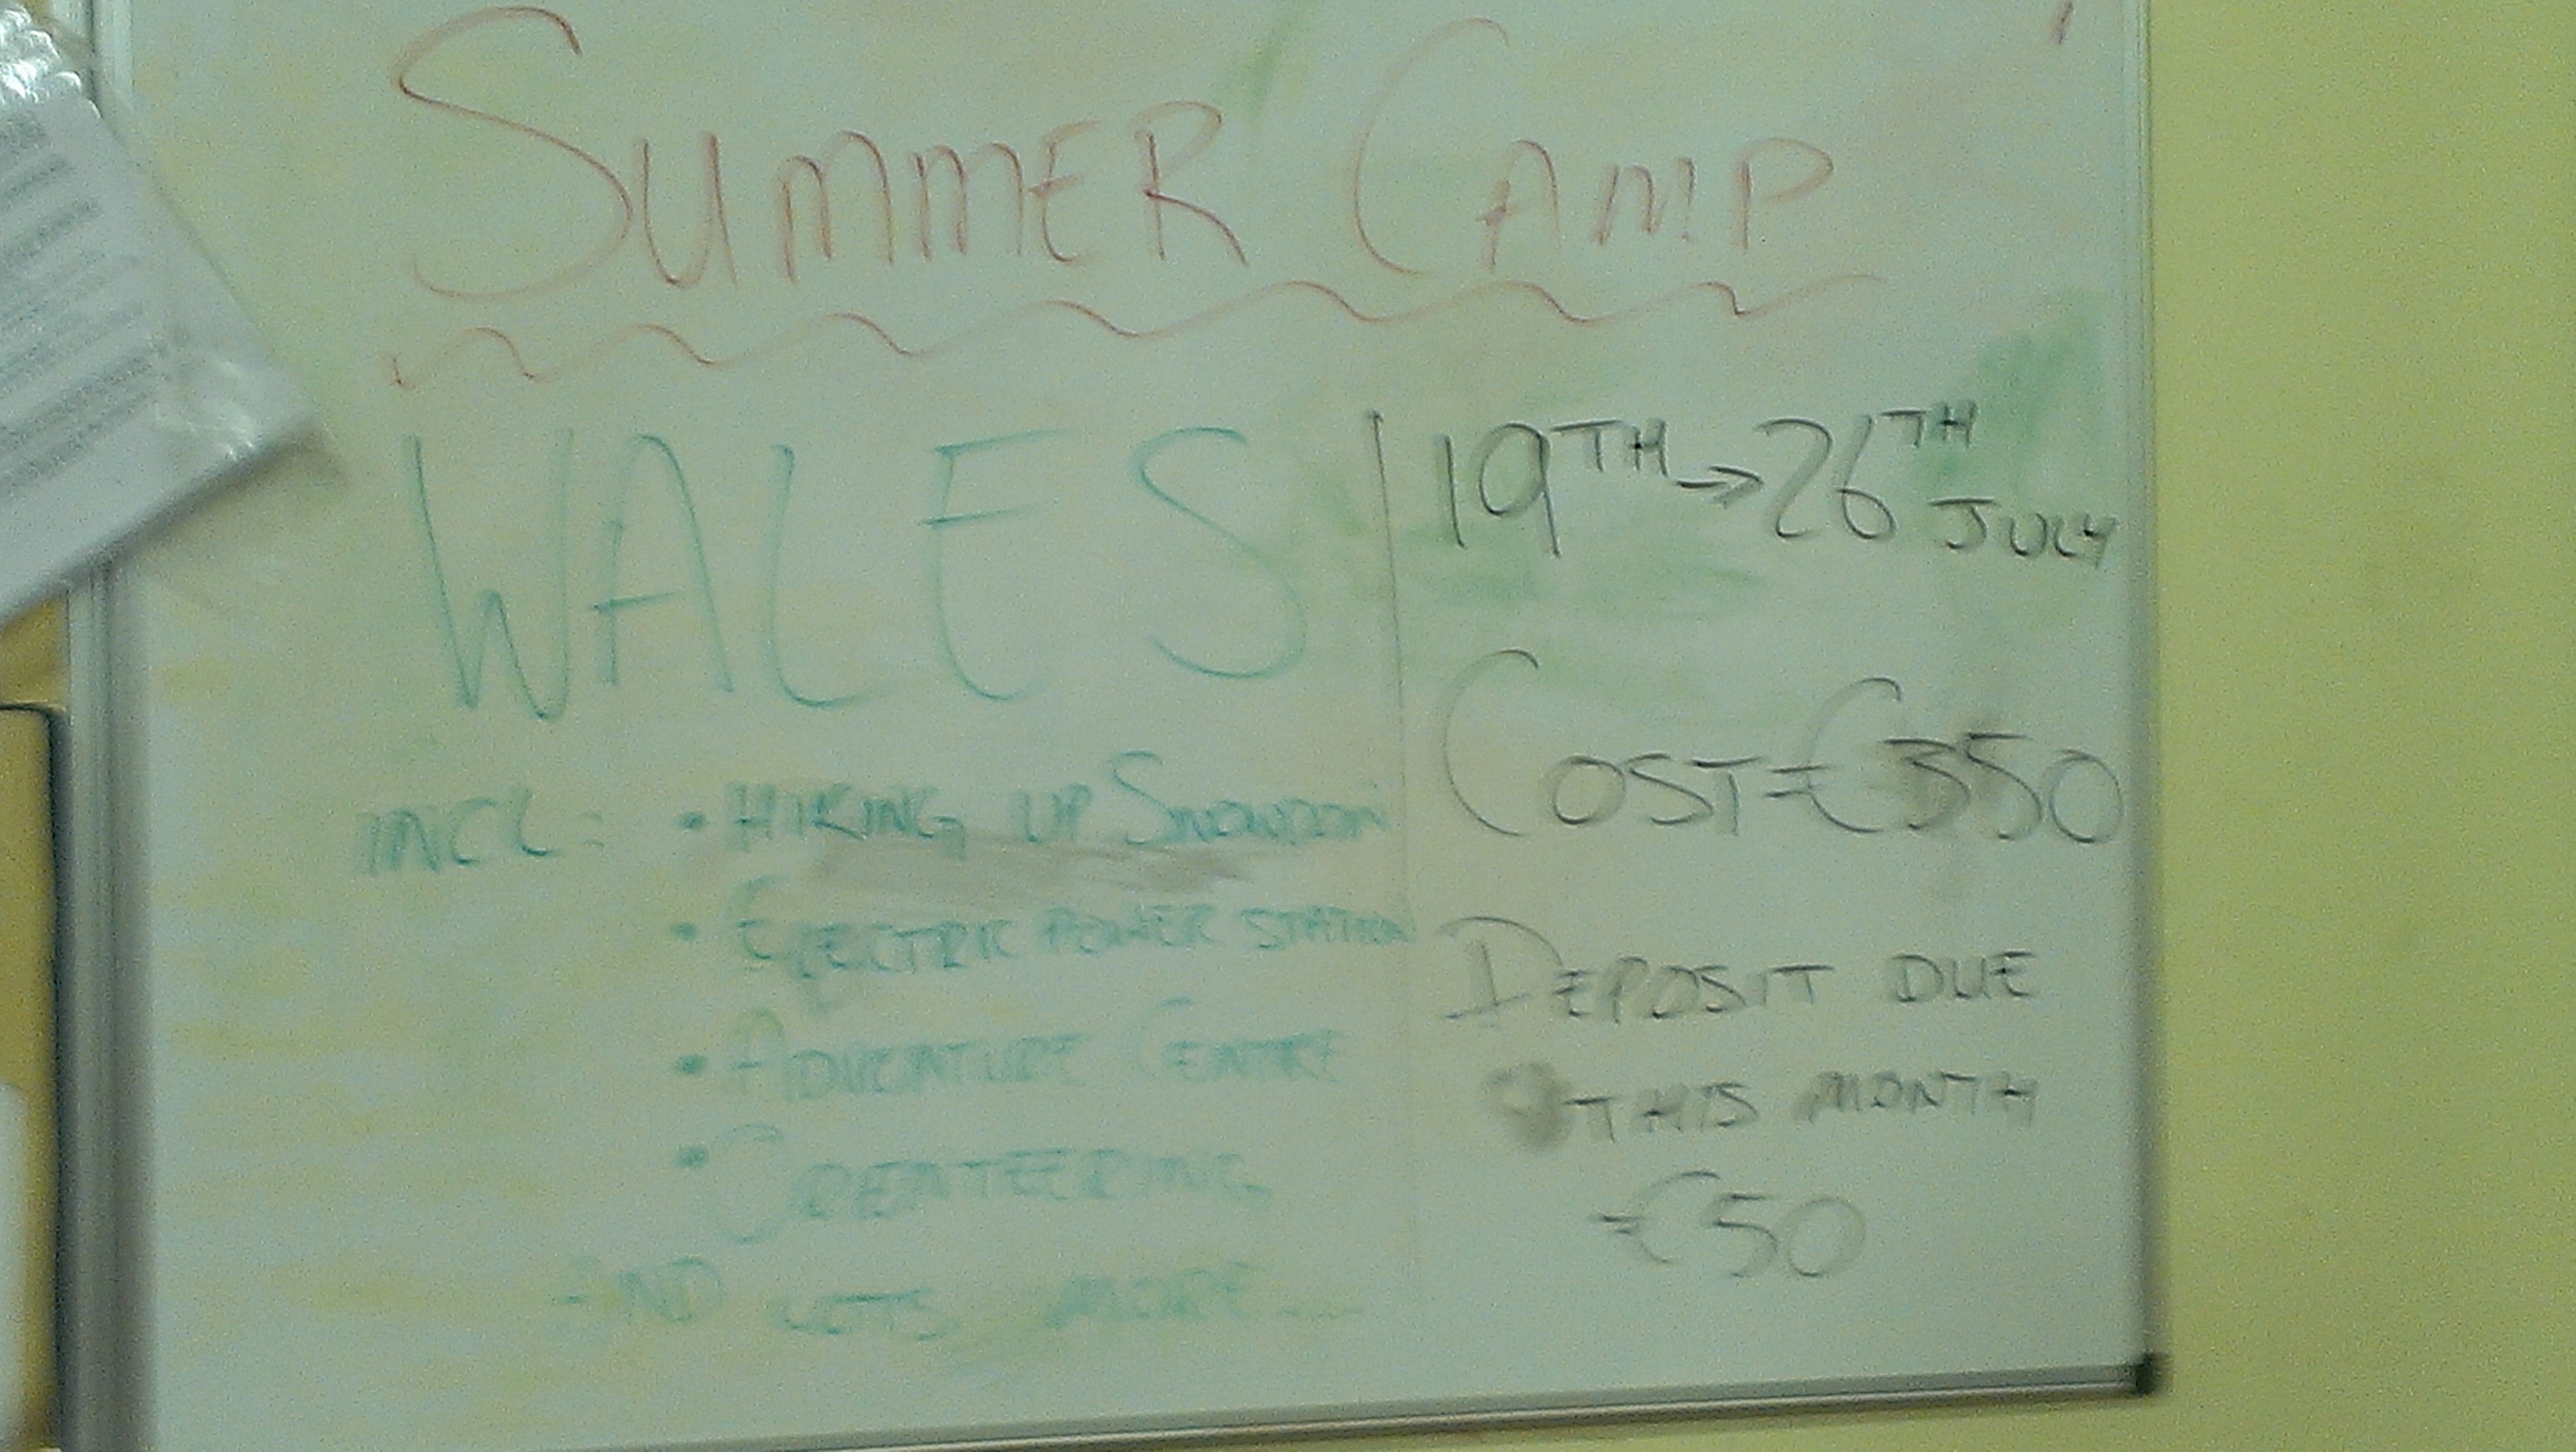 SUMMER CAMP
WALES
INCL:
• HIKING UP SNOWDON
• ELECTRIC POWER STATION
• ADVENTURE CENTRE
• ORENTEERING
AND LOTS MORE...
19TH → 26TH JULY
COST = €350
DEPOSIT DUE
THIS MONTH
€50